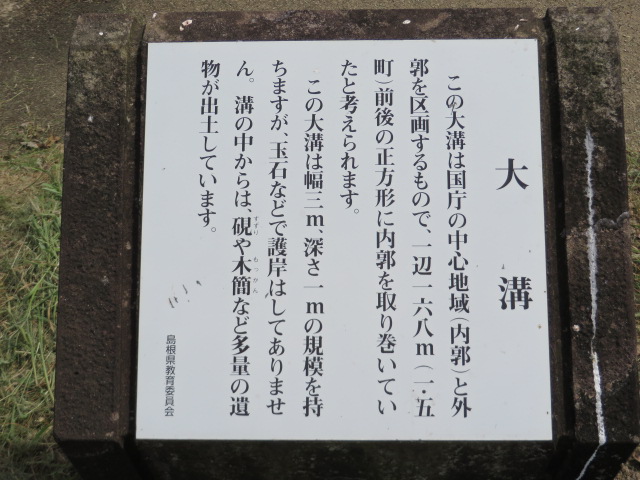 大溝
この大溝は国庁の中心地域(内郭)と外
郭を区画するもので、一辺一六八m(一・五
町)前後の正方形に内郭を取り巻いてい
たと考えられます。
この大溝は幅三m、深さ一mの規模を持
ちますが、玉石などで護岸はしてありませ
ん。溝の中からは、硯や木簡など多量の遺
すずり もっかん
物が出土しています。
島根県教育委員会